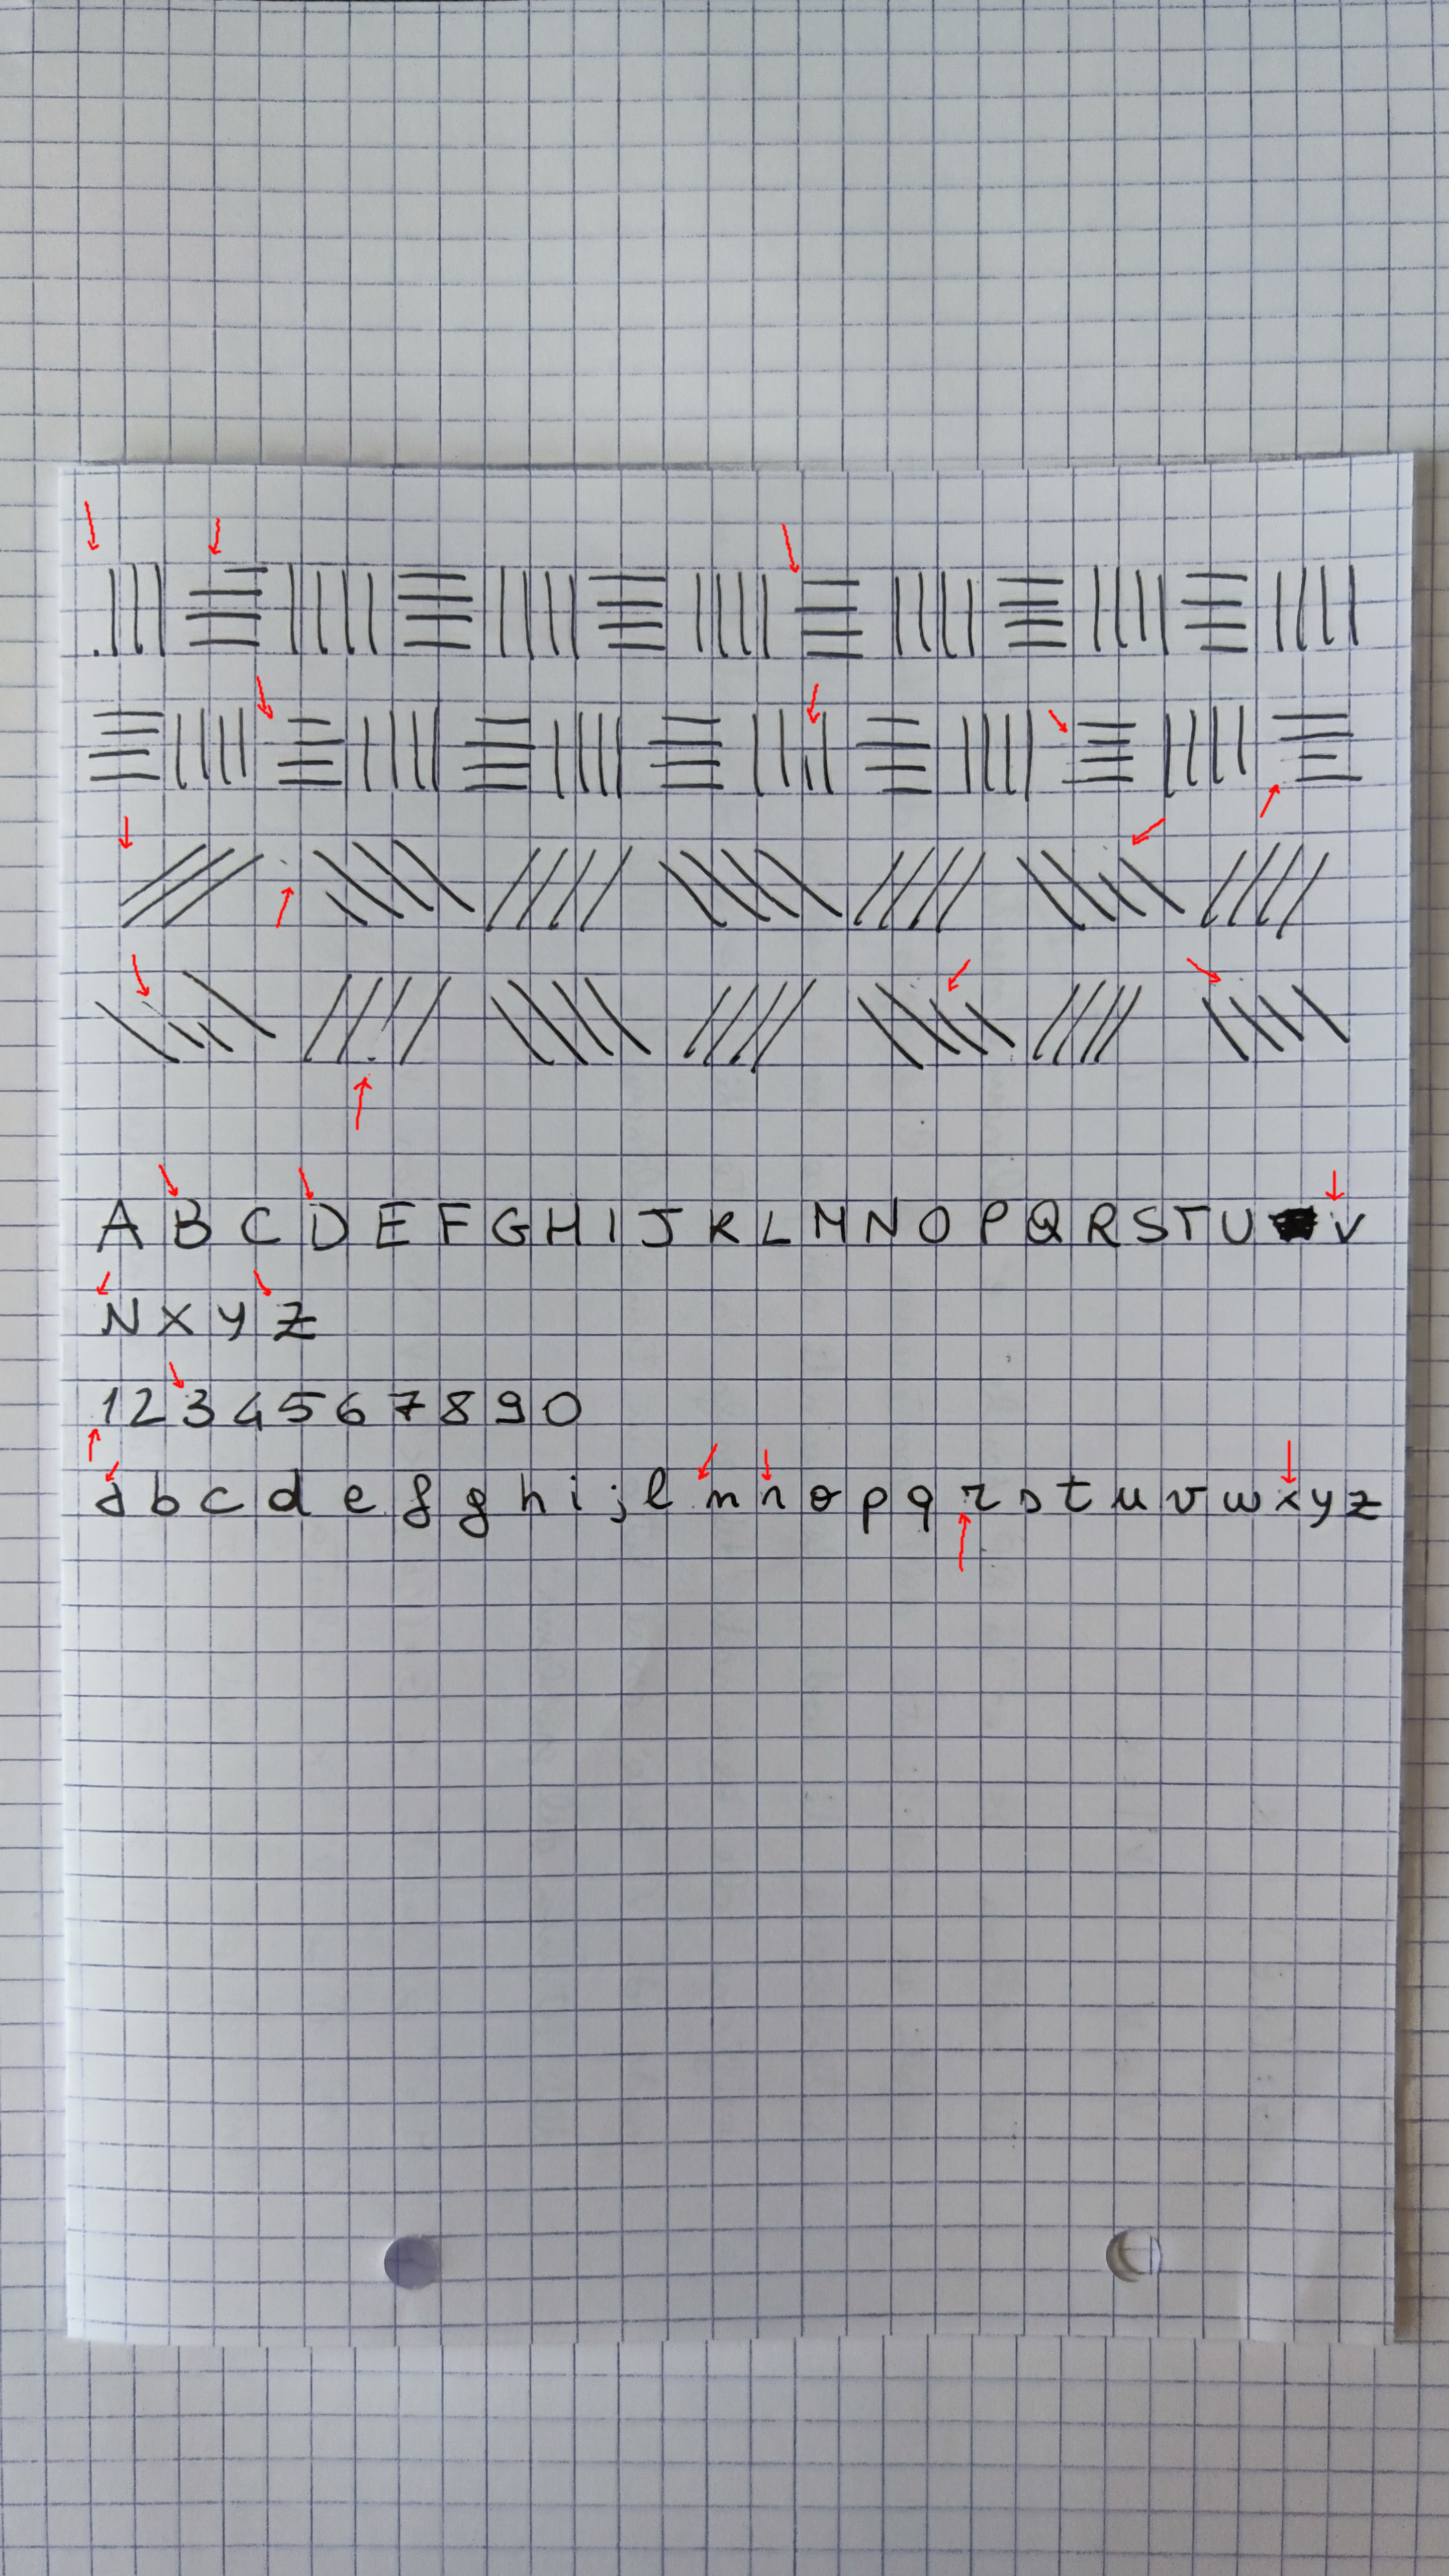 A B C D E F G H I J K L M N O P Q R S T U V
N X Y Z
1 2 3 4 5 6 7 8 9 0
a b c d e f g h i j l m n o p q r s t u v w x y z